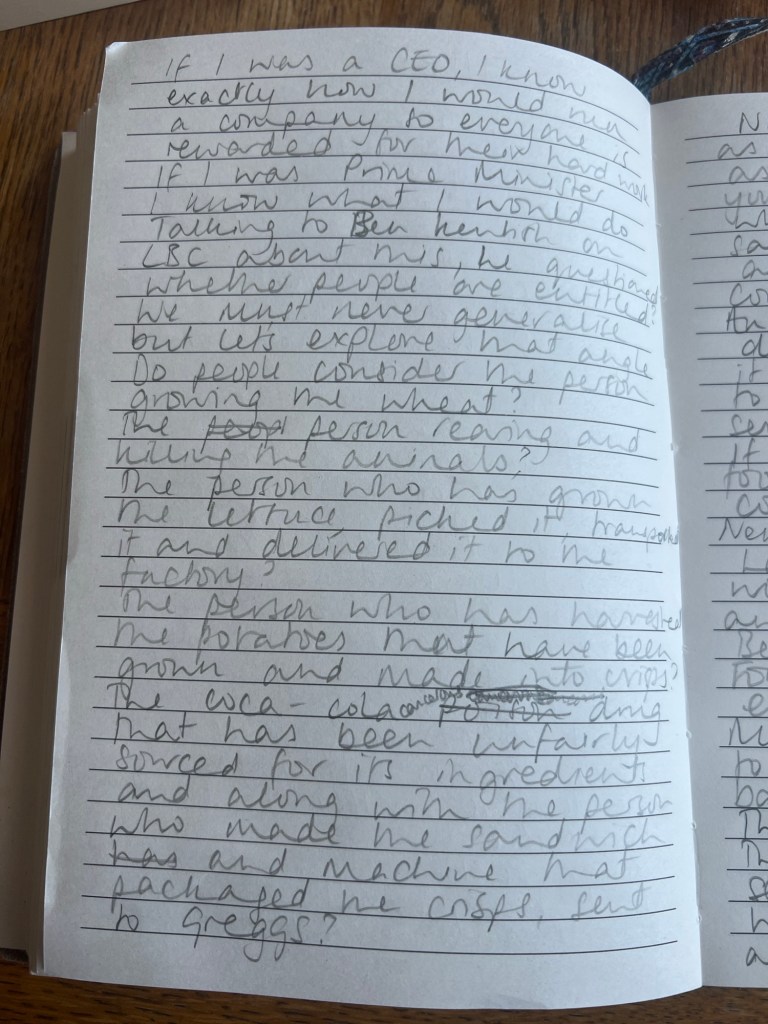 If I was a CEO, I know
exactly how I would run
a company so everyone is
rewarded for their hard work
If I was Prime Minister
I know what I would do
Talking to Ben Kentish on
LBC about this, he questioned
whether people are entitled?
We must never generalise
but let's explore that angle
Do people consider the person
growing the wheat?
The person rearing and
killing the animals?
The person who has grown
the lettuce, picked it, transported
it and delivered it to the
factory?
The person who has harvested
the potatoes that have been
grown and made into crisps?
The coca-cola poison drug
that has been unfairly
sourced for its ingredients
and along with the person
who made the sandwich
has and machine that
packaged the crisps, sent
to Greggs?
N
as
as
you
sa
a
co
An
d
it
to
ser
If
fou
co
New
wi
an
Be
For
e
to
ba
Th
Th
se
h
a